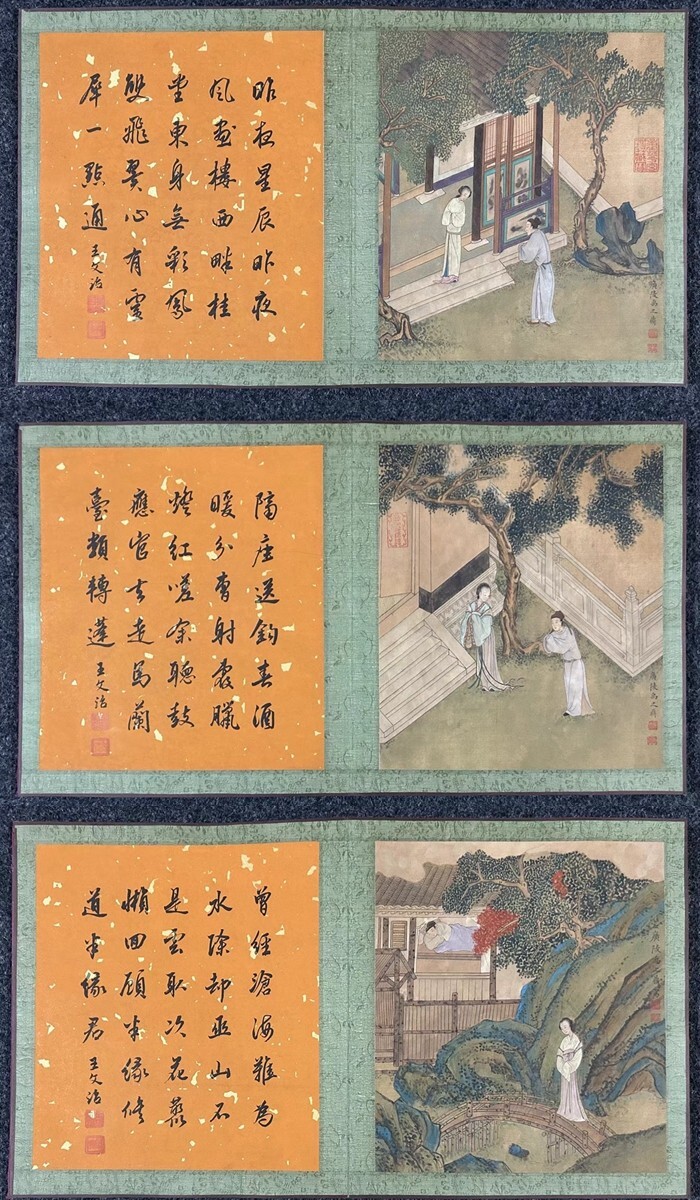 昨夜星辰昨夜
風畫樓西畔桂
堂東身無彩鳳
雙飛翼心有靈
犀一點通
王文治
廣陵禹之鼎
隔座送鈎春酒
暖分曹射覆臘
燈紅嗟余聽鼓
應官去走馬蘭
臺類轉蓬
王文治
廣陵禹之鼎
曾經滄海難為
水除却巫山不
是雲取次花叢
懶回顧半緣修
道半緣君
王文治